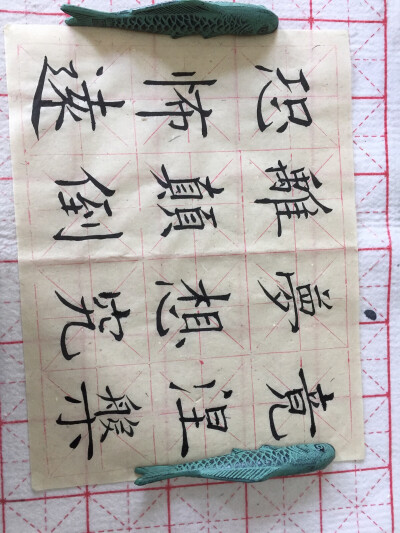 恐怖遠
離顛倒
夢想究
竟涅槃